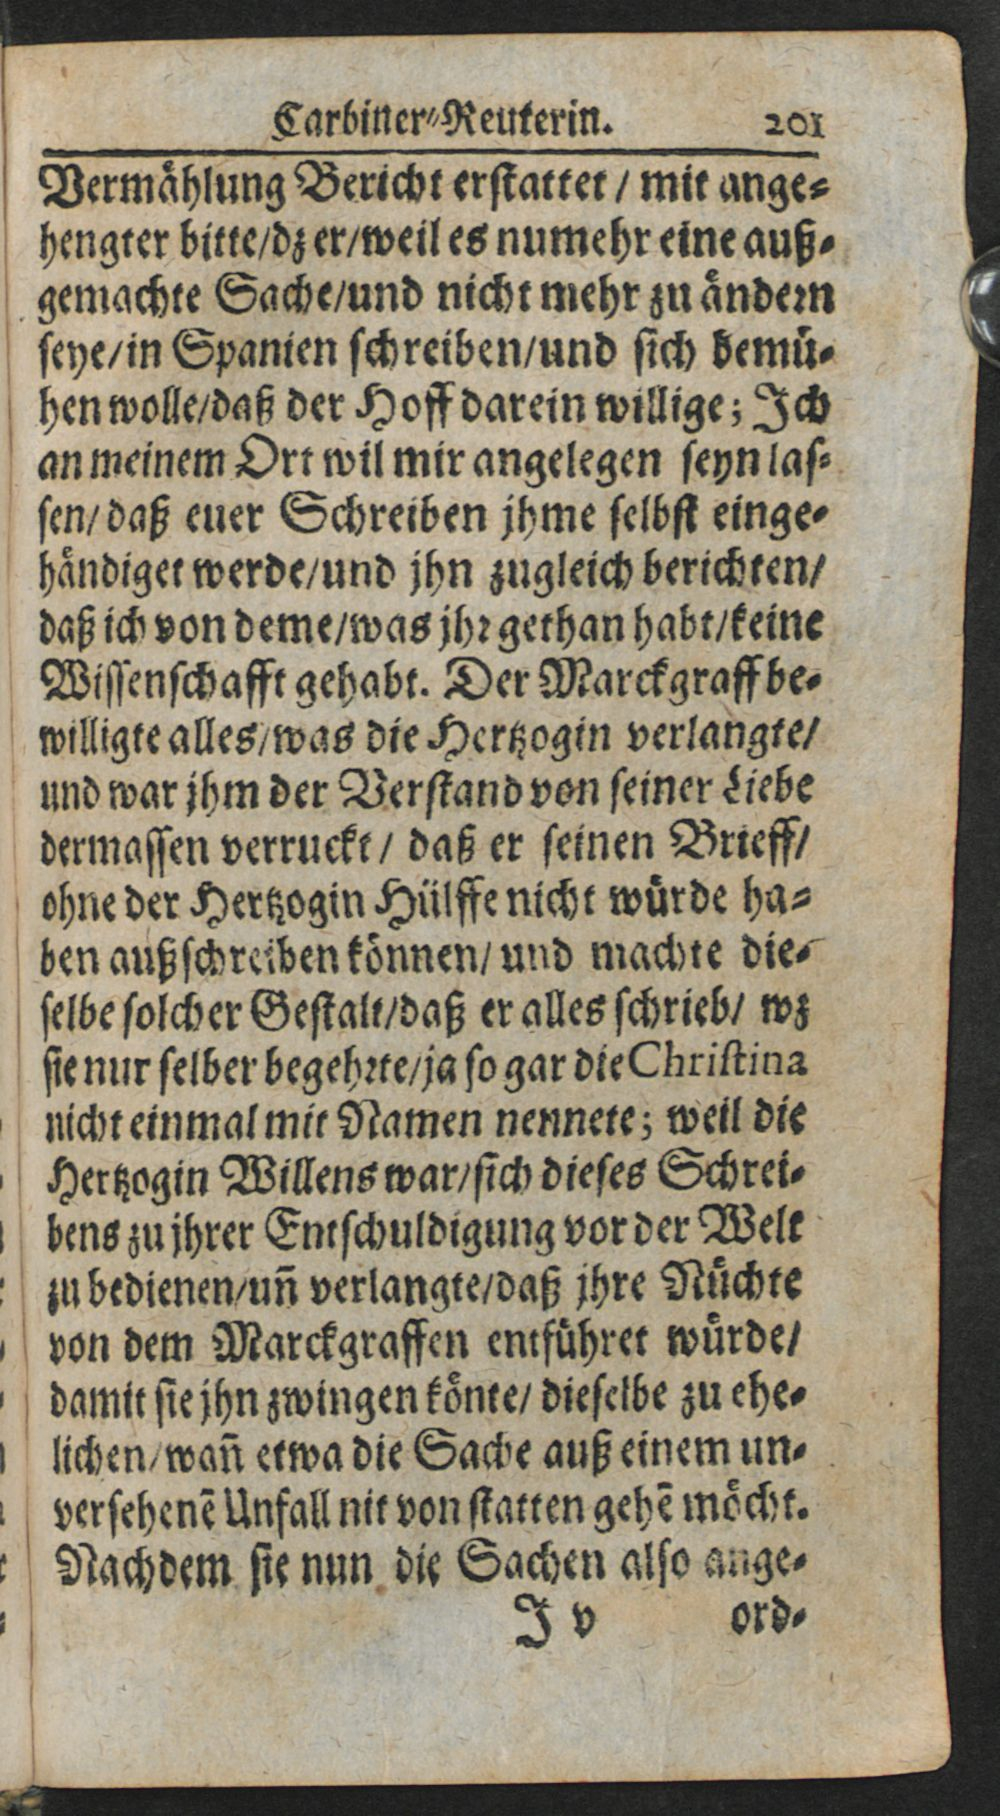 Carbiner-Reuterin. 201
Vermählung Bericht erstattet / mit ange-
hengter bitte/dz er/weil es numehr eine auß-
gemachte Sache/und nicht mehr zu ändern
seye/in Spanien schreiben/und sich bemü-
hen wolle/daß der Hoff darein willige; Ich
an meinem Ort wil mir angelegen seyn las-
sen/ daß euer Schreiben jhme selbst einge-
händiget werde/und jhn zugleich berichten/
daß ich von deme/was jhr gethan habt/keine
Wissenschafft gehabt. Der Marckgraff be-
willigte alles/was die Hertzogin verlangte/
und war jhm der Verstand von seiner Liebe
dermassen verruckt / daß er seinen Brieff/
ohne der Hertzogin Hülffe nicht würde ha-
ben außschreiben können/ und machte die-
selbe solcher Gestalt/daß er alles schrieb/ wz
sie nur selber begehrte/ja so gar die Christina
nicht einmal mit Namen nennete; weil die
Hertzogin Willens war/sich dieses Schrei-
bens zu jhrer Entschuldigung vor der Welt
zu bedienen/uñ verlangte/daß jhre Nüchte
von dem Marckgraffen entführet würde/
damit sie jhn zwingen könte/ dieselbe zu ehe-
lichen/wañ etwa die Sache auß einem un-
versehenẽ Unfall nit von statten gehẽ möcht.
Nachdem sie nun die Sachen also ange-
I v ord-